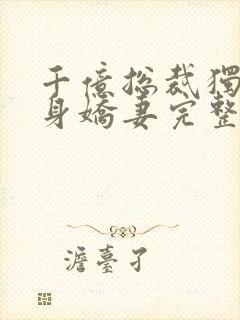 千億總裁獨
身嬌妻完整
澹臺孑